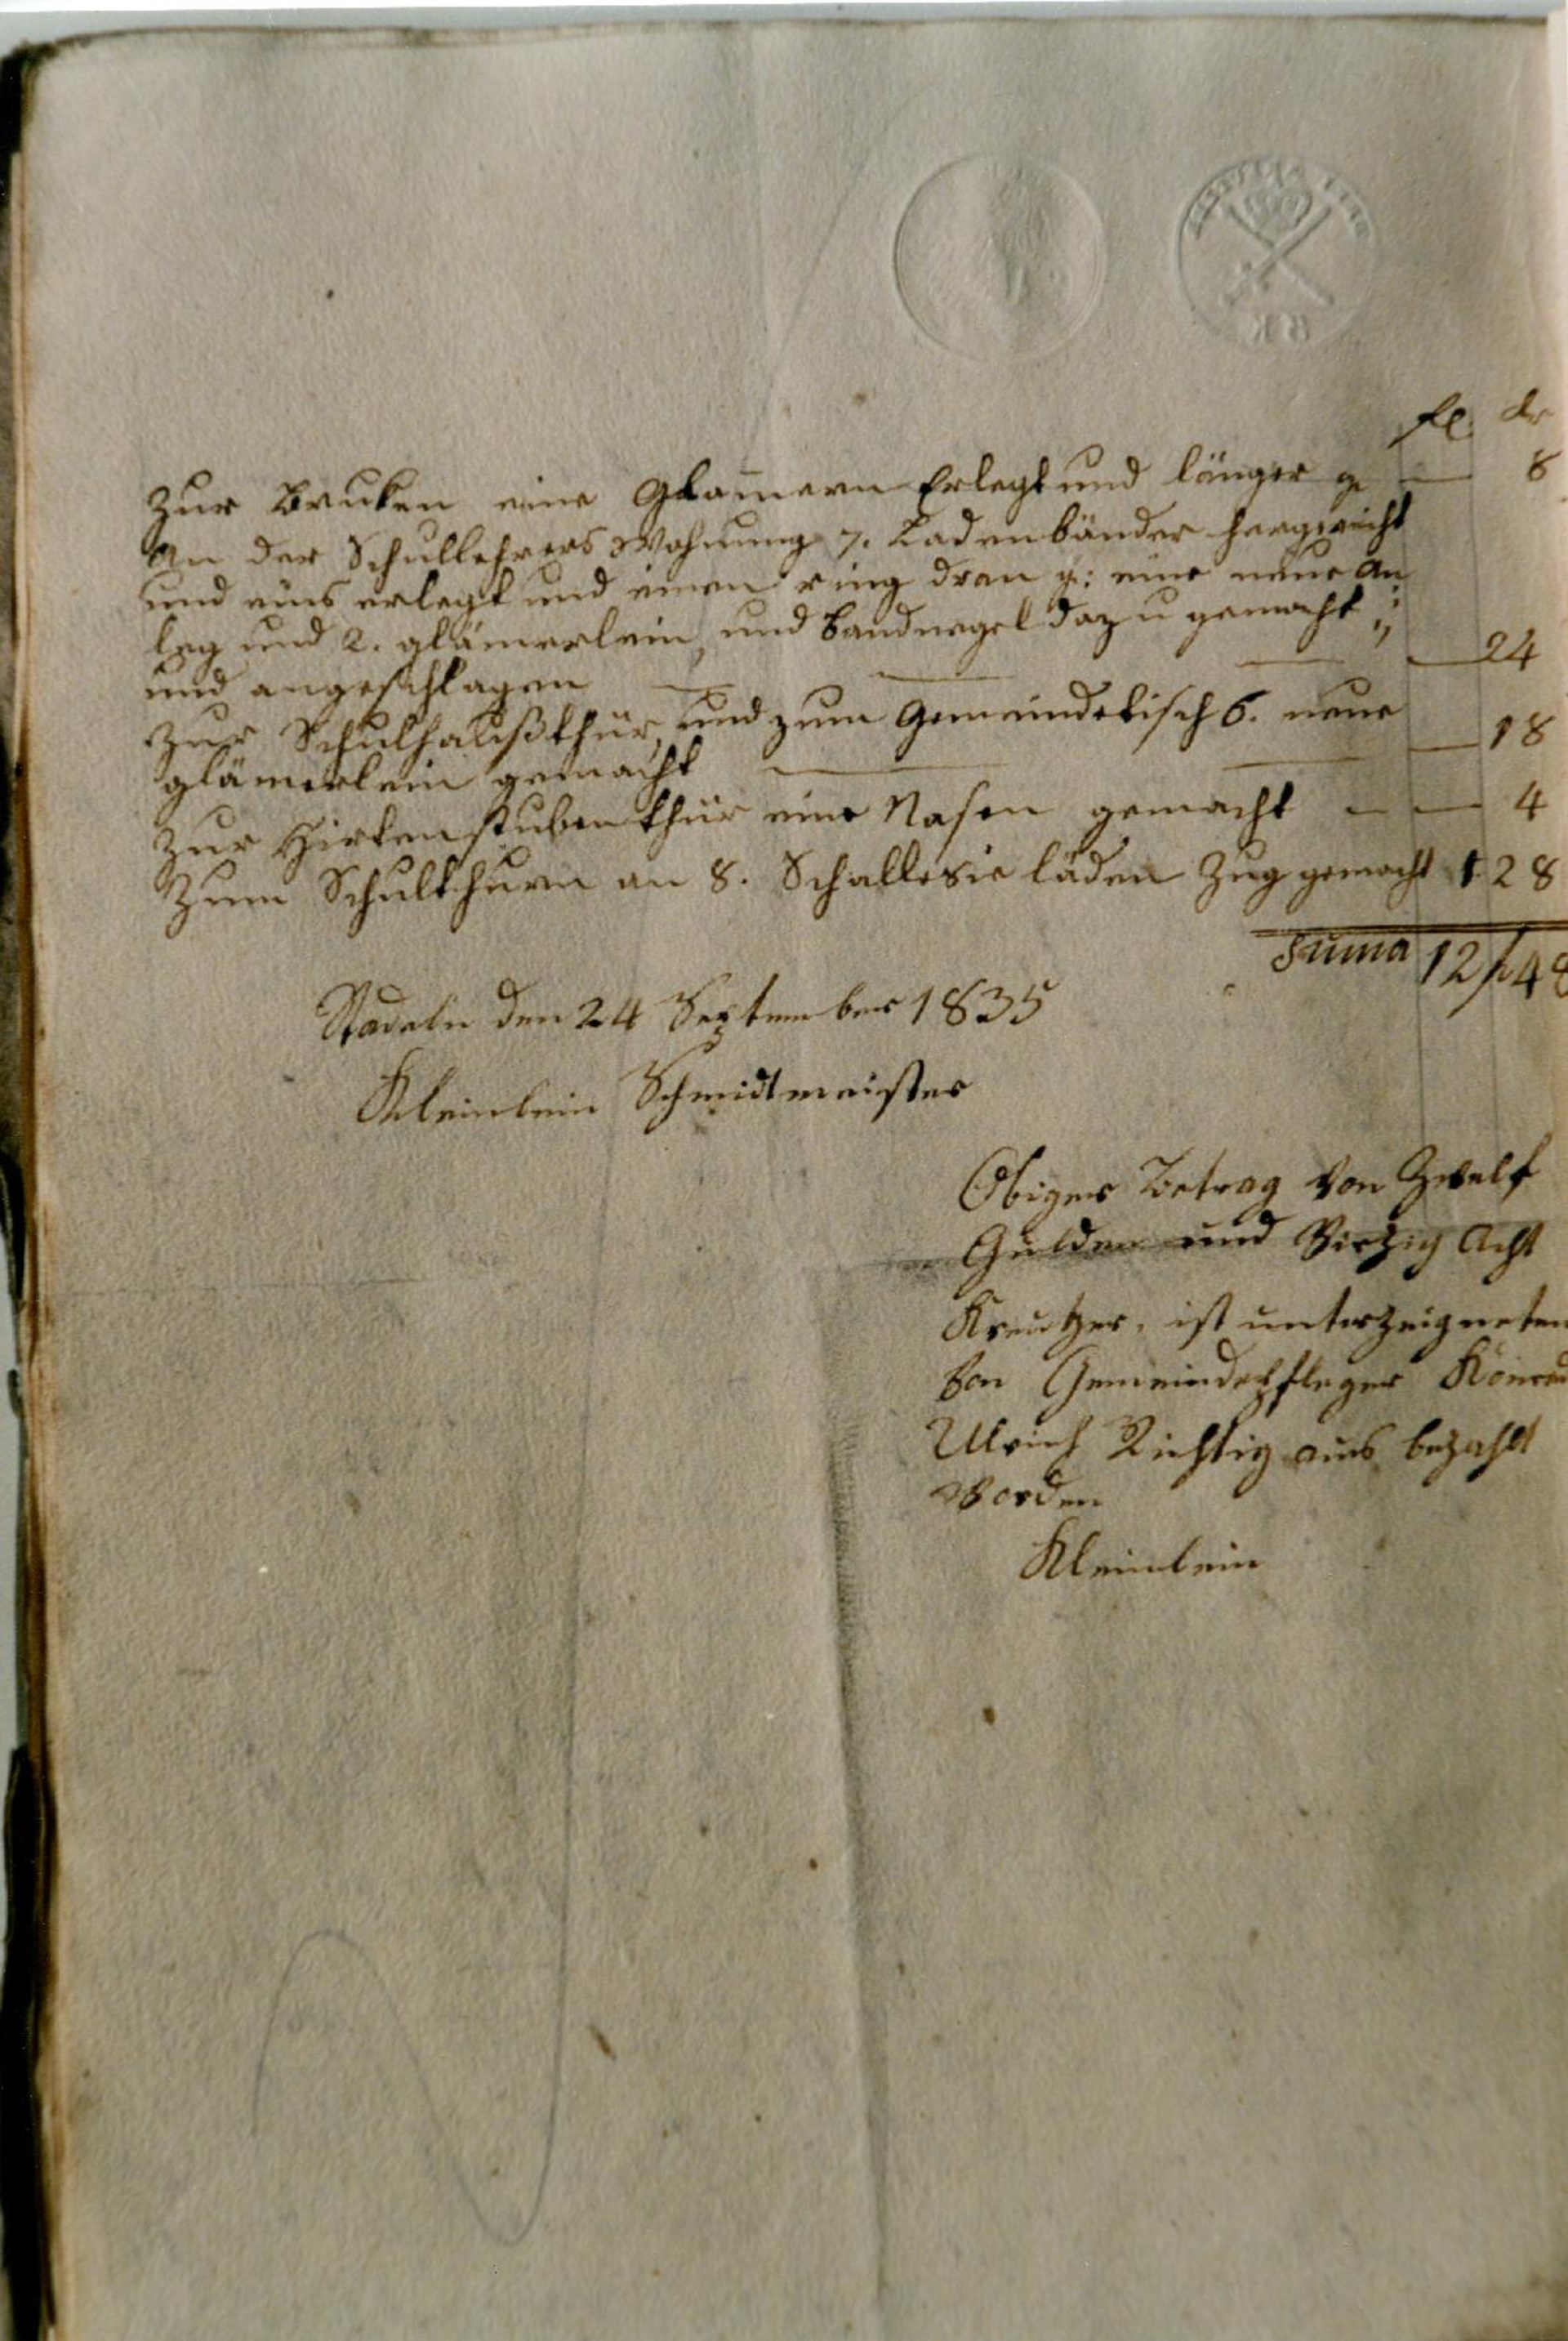 fl. kr
Zur Bruken eine Glamern Erlegt und länger g — 8
An der Schullehrers Wohnung 7. Ladenbänder hergericht
und eins erlegt und einen ring dran g: eine neue An
leg und 2. glämerlein, und Bandnegel dazu gemacht
und angeschlagen — — — — 24
Zur Schulhaußthür, und zum Gemeindetisch 6. neue
glämerlein gemacht — — — 18
Zur Hirtenstubenthür eine Nasen gemacht — — 4
Zum Schulthurn an 8. Schallesie läden Zug gemacht 1 28
Suma 12 / 48
Stadeln den 24 September 1835
Kleinlein Schmidtmeister
Obiger Betrag von Zwelf
Gulden und Vierzig Acht
Kreutzer, ist unterzeigneten
von Gemeindepfleger Konrad
Ulrich Richtig aus bezahlt
Worden
Kleinlein